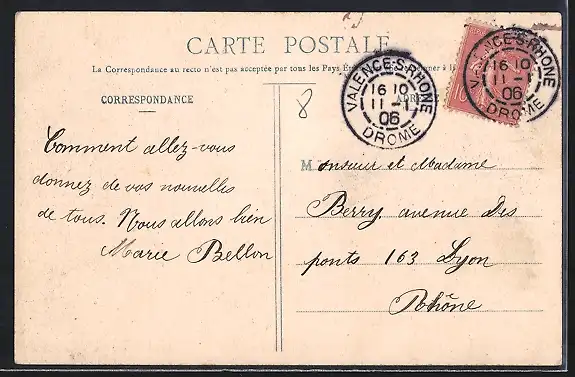 CARTE POSTALE
La Correspondance au recto n'est pas acceptée par tous les Pays
CORRESPONDANCE
8
VALENCE-S-RHONE
16 10
11 - 1
06
DROME
VALENCE-S-RHONE
16 10
11 - 1
06
DROME
Comment allez-vous
donnez de vos nouvelles
de tous. Nous allons bien
Marie Bellon
Monsieur et Madame
Berry avenue Des
ponts 163 Lyon
Rhône